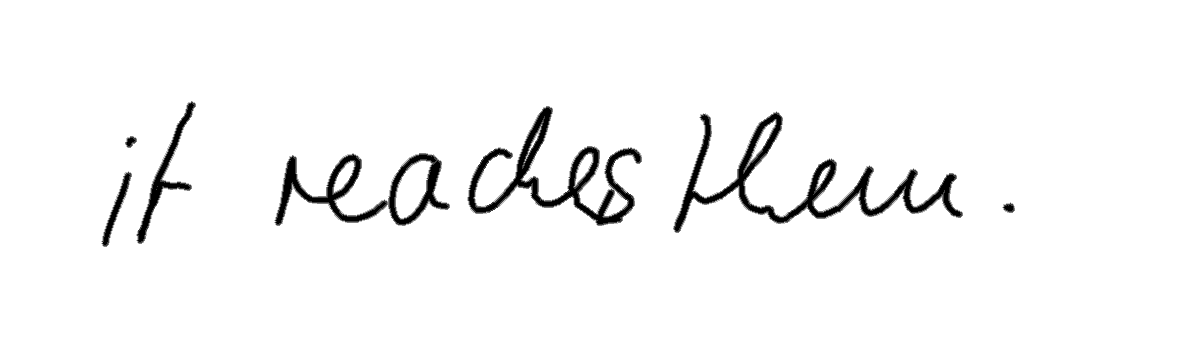 it reaches them.